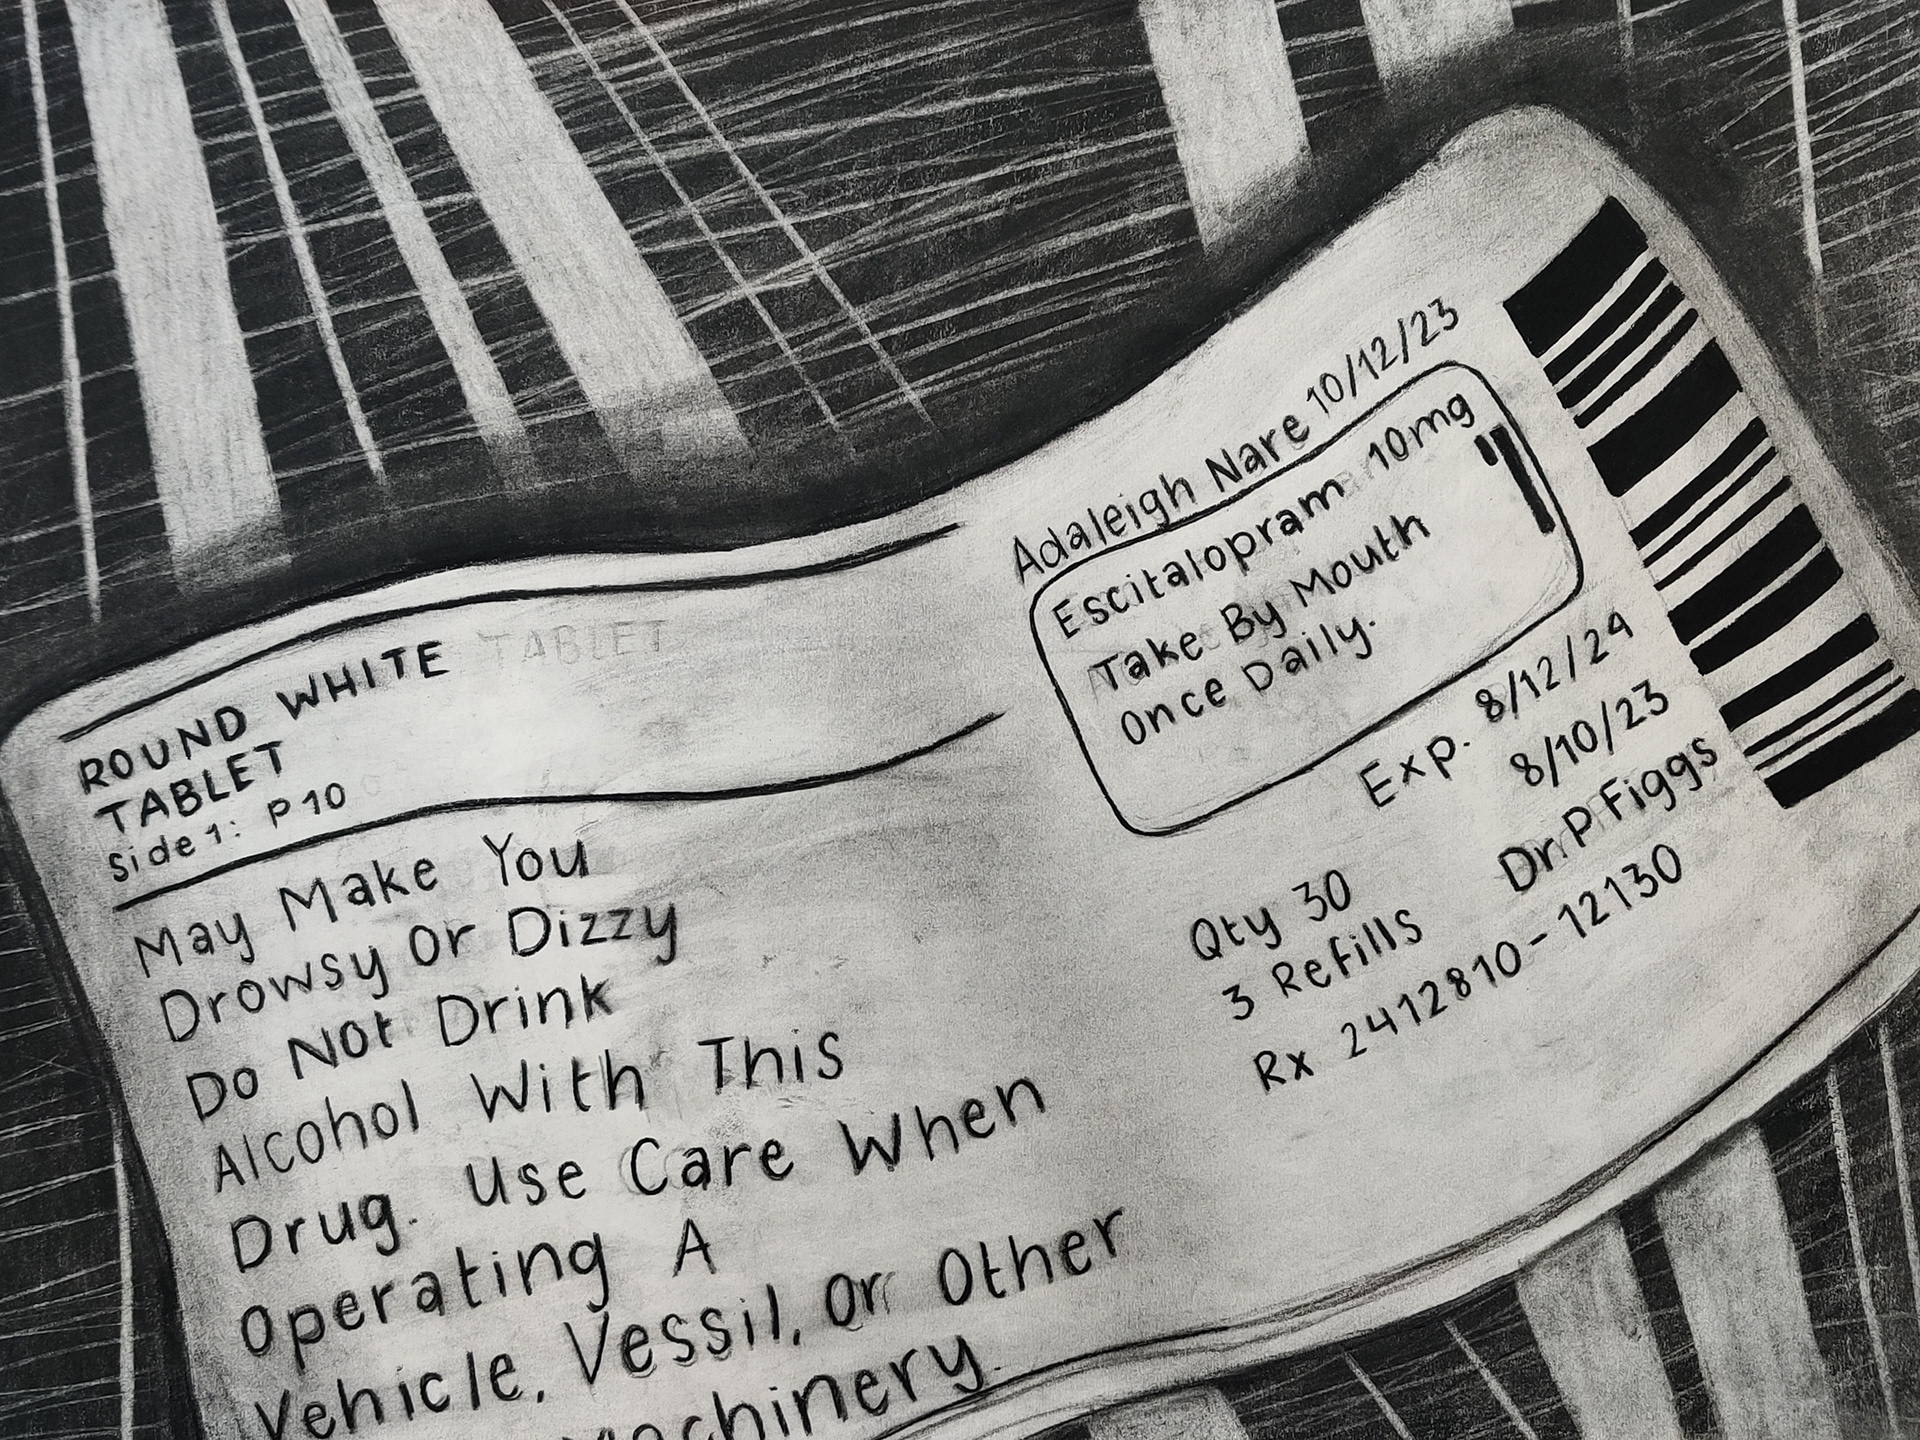 ROUND WHITE TABLET
TABLET
Side 1: P 10
May Make You
Drowsy Or Dizzy
Do Not Drink
Alcohol With This
Drug. Use Care When
Operating A
Vehicle, Vessil, Or Other
Machinery.
Adaleigh Nare 10/12/23
Escitalopram 10mg
Take By Mouth
Once Daily.
Exp. 8/12/24
8/10/23
Qty 30 Dr. P Figgs
3 Refills
Rx 2412810-12130